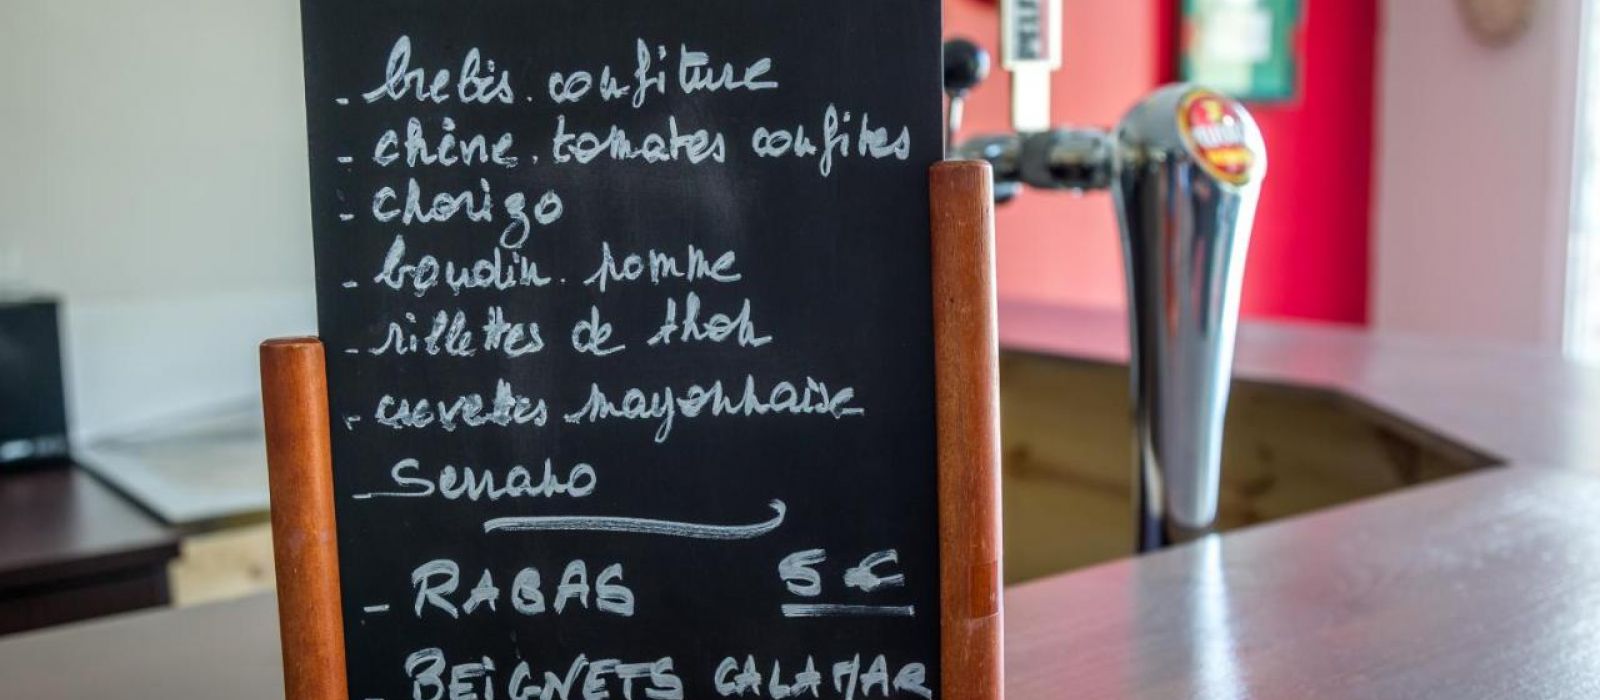 - brebis. confiture
- chèvre. tomates confites
- chorizo
- boudin. pomme
- rillettes de thon
- crevettes mayonnaise
- Serrano
- RABAS 5 €
- BEIGNETS CALAMAR